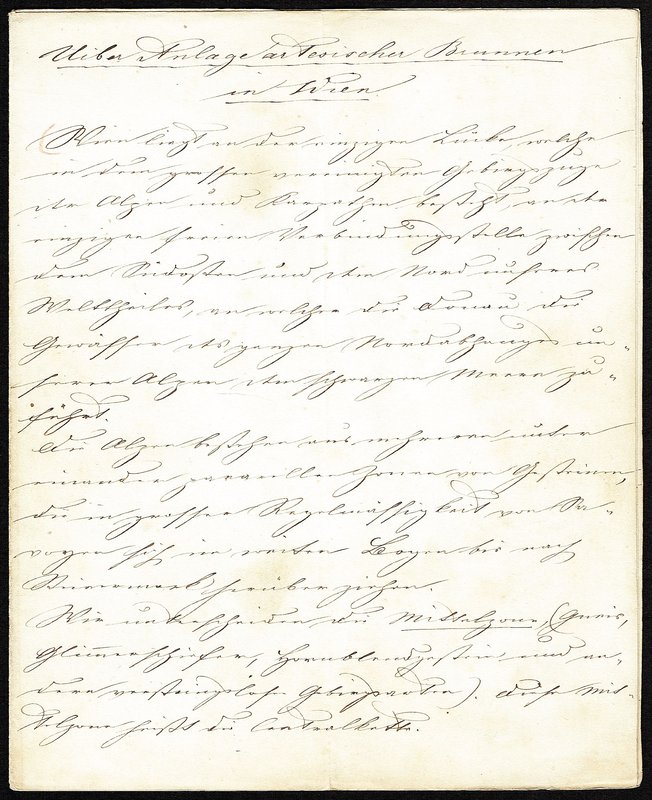 Uiber Anlage artesischer Brunnen
in Wien
Wien liegt an der einzigen Lücke, welche
in dem grossen vereinigten Gebirgszuge
der Alpen und Karpathen besteht, an der
einzigen freien Verbindungsstelle zwischen
dem Südosten und dem Nord unseres
Welttheiles, an welcher die Donau die
Gewässer des ganzen Nordabhanges un-
serer Alpen dem schwarzen Meere zu-
führt.
Die Alpen bestehen aus mehreren unter
einander parallelen Zonen von Gesteinen,
die in grosser Regelmässigkeit von Sa-
voyen sich im weiten Bogen bis nach
Steiermark herüber ziehen.
Wir unterscheiden die Mittelzone, (Gneis,
Glimmerschiefer, Hornblendgestein und an-
dere versteinerungslose Gebirgsarten). Diese Mit-
telzone heißt die Centralkette.